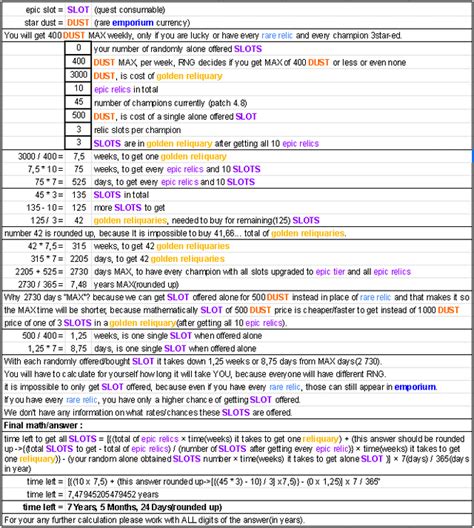 epic slot = SLOT (quest consumable)
star dust = DUST (rare emporium currency)
You will get 400 DUST MAX weekly, only if you are lucky or have every rare relic and every champion 3star-ed.
0 your number of randomly alone offered SLOTS
400 DUST MAX, per week, RNG decides if you get MAX of 400 DUST or less or even none
3000 DUST, is cost of golden reliquary
10 epic relics in total
45 number of champions currently (patch 4.8)
500 DUST, is cost of a single alone offered SLOT
3 relic slots per champion
3 SLOTS are in golden reliquary after getting all 10 epic relics
3000 / 400 = 7,5 weeks, to get one golden reliquary
7,5 * 10 = 75 weeks, to get every epic relics and 10 SLOTS
75 * 7 = 525 days, to get every epic relics and 10 SLOTS
45 * 3 = 135 SLOTS in total
135 - 10 = 125 more SLOTS to get
125 / 3 = 42 golden reliquaries, needed to buy for remaining(125) SLOTS
number 42 is rounded up, because It is impossible to buy 41,66... total of golden reliquaries.
42 * 7,5 = 315 weeks, to get 42 golden reliquaries
315 * 7 = 2205 days, to get 42 golden reliquaries
2205 + 525 = 2730 days MAX, to have every champion with all slots upgraded to epic tier and all epic relics
2730 / 365 = 7,48 years MAX(rounded up)
Why 2730 days "MAX"? because we can get SLOT offered alone for 500 DUST instead in place of rare relic and that makes it so
the MAX time will be shorter, because mathematically SLOT of 500 DUST price is cheaper/faster to get instead of 1000 DUST
price of one of 3 SLOTS in a golden reliquary(after getting all 10 epic relics).
500 / 400 = 1,25 weeks, is one single SLOT when offered alone
1,25 * 7 = 8,75 days, is one single SLOT when offered alone
With each randomly offered/bought SLOT it takes down 1,25 weeks or 8,75 days from MAX days(2 730).
You will have to calculate for yourself how long it will take YOU, because everyone will have different RNG.
it is impossible to only get SLOT offered, because even if you have every rare relic, those can still appear in emporium.
If you have every rare relic, you only have a higher chance of getting SLOT offered.
We don't have any information on what rates/chances these SLOTS are offered.
Final math/answer :
time left to get all SLOTS = [{(total of epic relics × time(weeks) it takes to get one reliquary) + (this answer should be rounded
up->((total SLOTS to get - total of epic relics) / (number of SLOTS after getting every epic relic)}× time(weeks) it takes to get one
reliquary)} - (your random alone obtained SLOTS number × time(weeks) it takes to get alone SLOT )] × 7(days) / 365(days
in year)
time left = [{(10 x 7,5) + (this answer should be rounded up->[{(45 * 3) - 10} / 3] x 7,5)} - (0 x 1,25)] x 7 / 365"
time left = 7,47945205479452 years
time left = 7 Years, 5 Months, 24 Days(rounded up)
For your any further calculation please work with ALL digits of the answer(in years).